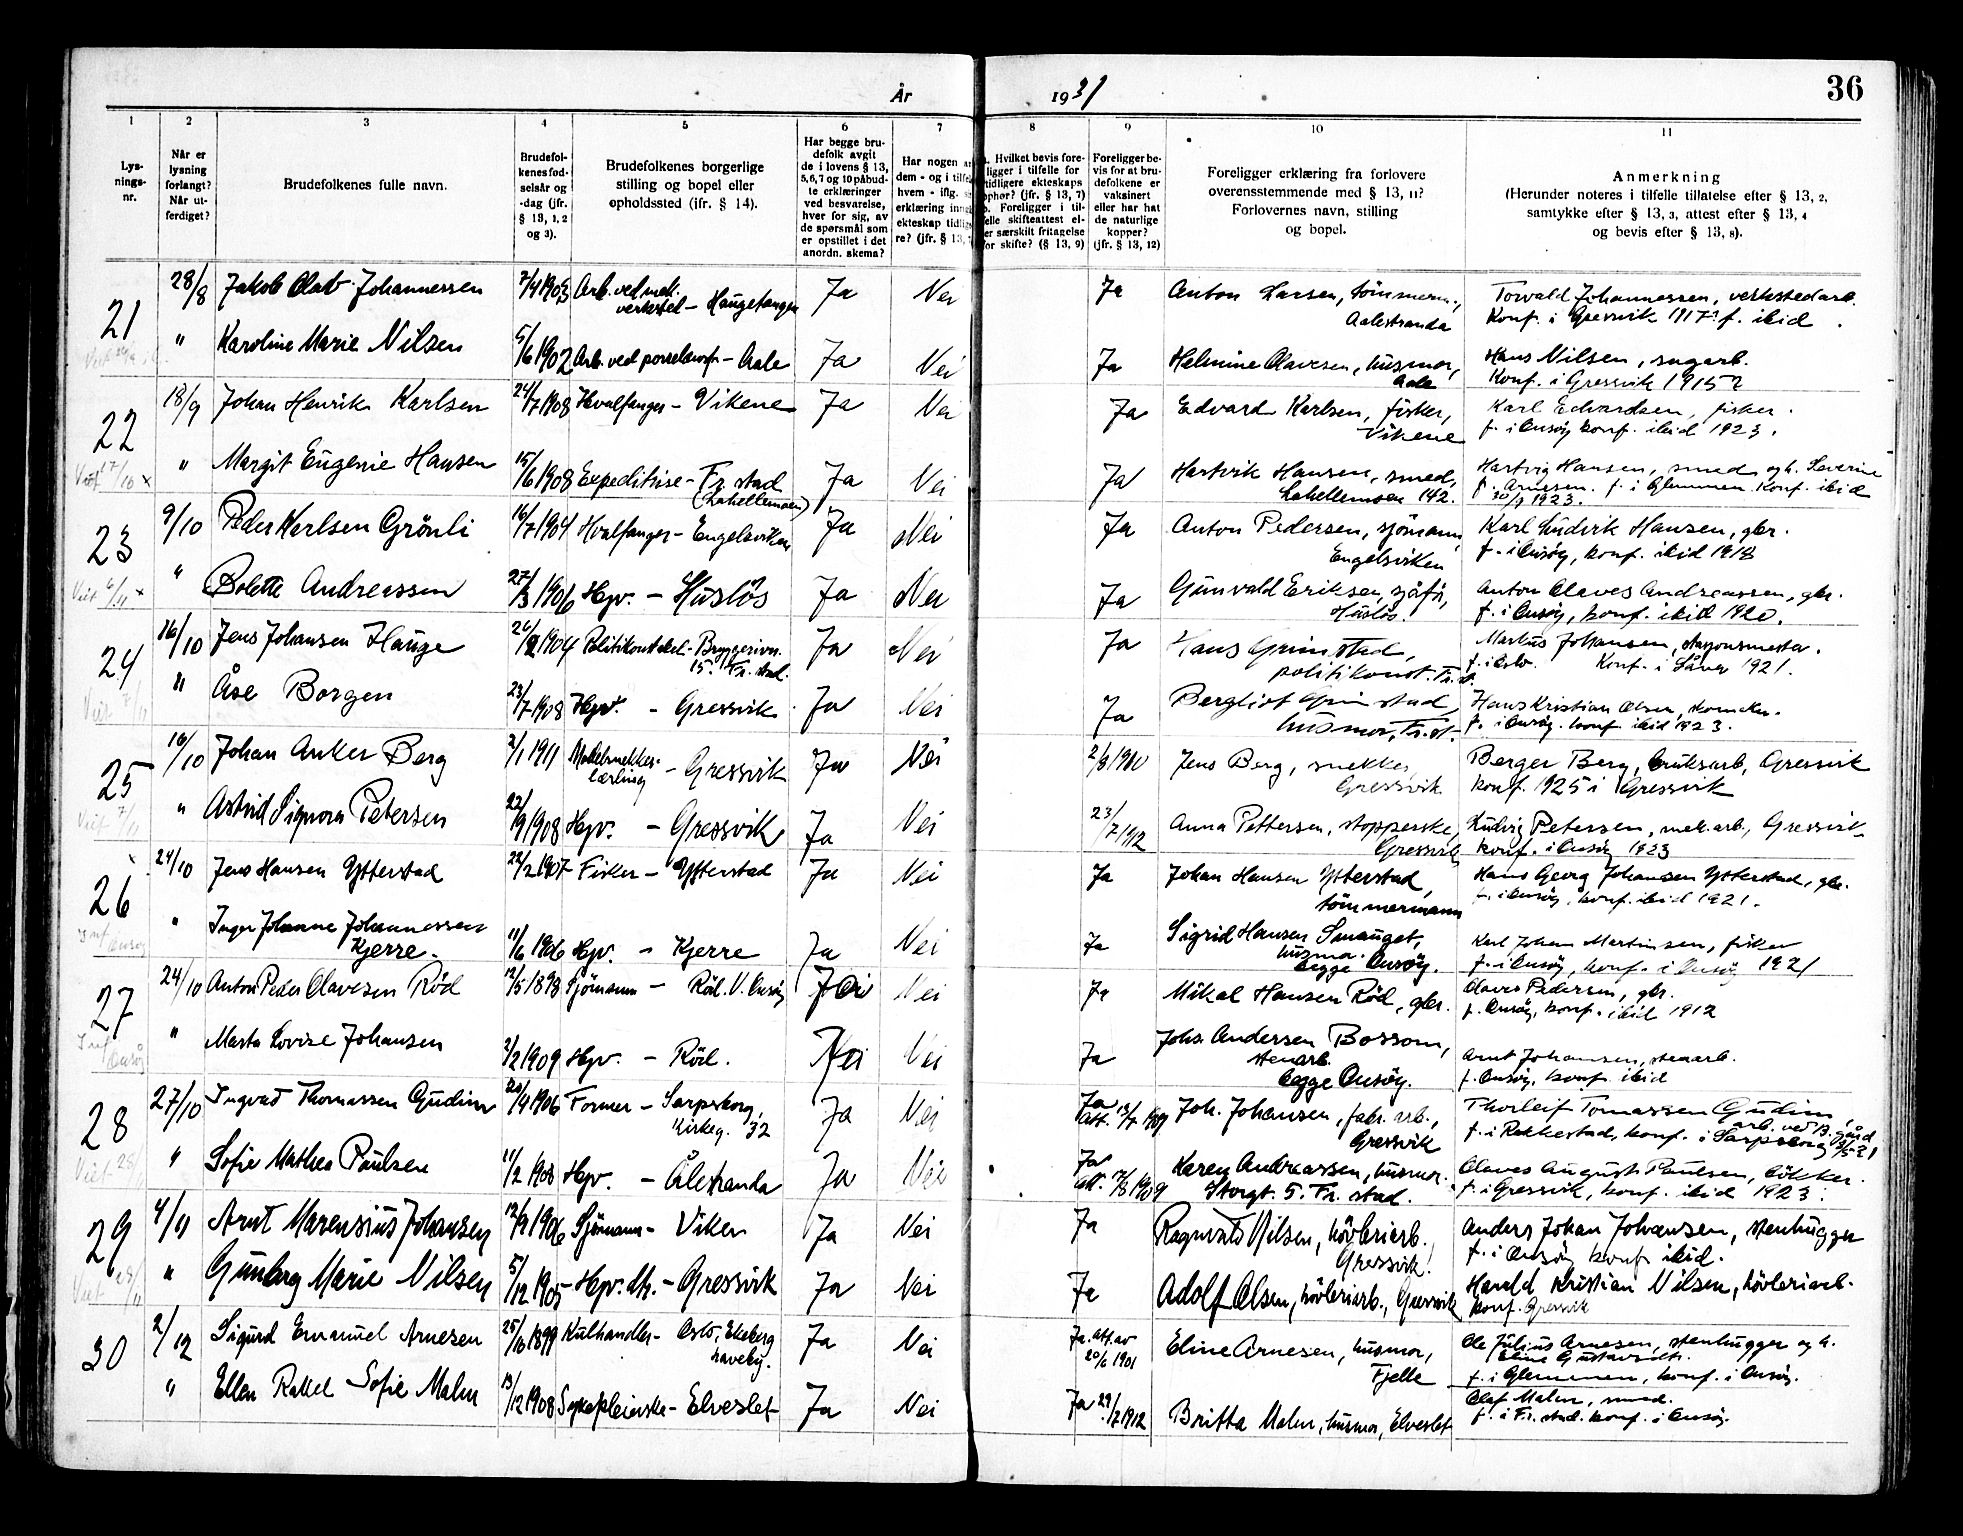 År 1931
36
1 2 3 4 5 6 7 8 9 10 11
Lys-
nings-
nr.
Når er
lysning
forlangt?
Når ut-
ferdiget?
Brudefolkenes fulle navn.
Brudefol-
kenes fød-
selsår og
-dag (jfr.
§ 13, 1, 2
og 3).
Brudefolkenes borgerlige
stilling og bopel eller
opholdssted (ifr. § 14).
Har begge bru-
defolk avgit
de i lovens § 13,
5,6,7 og 10 påbud-
te erklæringer
ved besvarelse,
hver for sig, av
de spørsmål som
er opstillet i det
anordn. skema?
Har nogen av
dem - og i tilfelle
hvem - iflg.
erklæring inngått
ekteskap tidlige-
re? (jfr. § 13,
Hvilket bevis fore-
ligger i tilfelle for
tidligere ekteskaps
ophør? (jfr. § 13, 7)
Foreligger i til-
felle skifteattest el-
ler særskilt fritagelse
for skifte? (§ 13, 9)
Foreligger be-
vis for at bru-
defolkene er
vaksinert
eller har hat
de naturlige
kopper?
(jfr. § 13, 12)
Foreligger erklæring fra forlovere
overensstemmende med § 13, 11?
Forlovernes navn, stilling
og bopel.
Anmerkning
(Herunder noteres i tilfelle tillatelse efter § 13, 2,
samtykke efter § 13, 3, attest efter § 13, 4
og bevis efter § 13, 8).
21 28/8 Jakob Olav Johannessen 7/4 1903 Arb. ved mek. verksted - Haugetangen Ja Nei Ja Anton Larsen, tömmerm., Aalestranda Torvald Johannessen, verkstedarb. Konf. i Gressvik 1917. f. ibid.
" Karoline Marie Nilsen 5/6 1902 Arb. ved porselensf - Aale Ja Nei Ja Helmine Olavesen, husmor, Aale Hans Nilsen, sagarb. Konf. i Gressvik 1915?
22 18/9 Johan Henrik Karlsen 24/7 1908 Hvalfanger - Vikene Ja Nei Ja Edvard Karlsen, fisker, Vikene Karl Edvardsen, fisker. f. i Onsöy konf. ibid 1923.
Vuf 17/10 x " Margit Eugenie Hansen 15/6 1908 Expeditrise - Fr.stad (Lahellemoen) Ja Nei Ja Hartvik Hansen, smed, Lahellemoen 142. Hartvig Hansen, smed og h. Severine f. Arnesen. f. i Glemmen konf. ibid 30/9 1923.
23 9/10 Peder Karlsen Grönli 16/7 1904 Hvalfanger - Engelsviken Ja Nei Ja Anton Pedersen, sjömann, Engelsviken Karl Ludvik Hansen, gbr. f. i Onsöy, konf. ibid 1918
" Bolette Andreassen 27/3 1906 Hpv. - Huslös Ja Nei Ja Gunvald Eriksen, Huslös. Anton Olaves Andreassen, gbr. f. i Onsöy, konf. ibid 1920.
24 16/10 Jens Johansen Hauge 1904 Politikonstabel - Bryggerivn. 15. Fr.stad. Ja Nei Ja Hans Grimstad, politikonst. Fr.st. Markus Johansen, stasjonsmester. f. i Oslo. Konf. i Såner 1921.
" Åse Borgen 23/7 1908 Hpv. - Gressvik Ja Nei Ja Bergliot Grimstad, husmor, Fr.st. Hans Kristian Olsen, f. i Onsöy. konf ibid 1923.
25 16/10 Johan Anker Berg 2/1 1911 Modelsnekkerlærling - Gressvik Ja Nei 2/8 1910 Jens Berg, snekker, Gressvik Berger Berg, bruksarb, Gressvik konf. 1925 i Gressvik
7/11 " Astrid Signora Petersen 22/9 1908 Hpv. - Gressvik Ja Nei 23/7 1912 Anna Pettersen, stopperske, Gressvik Ludvig Petersen, mek. arb., Gressvik konf. i Onsöy 1923
26 24/10 Jens Hansen Ytterstad 22/2 1907 Fisker - Ytterstad Ja Nei Ja Johan Hansen Ytterstad, tömmermann Hans Georg Johansen Ytterstad, gbr. f. i Onsöy, konf. ibid 1921.
" Inger Johanne Johannessen Kjerre. 11/6 1906 Hpv. - Kjerre Ja Nei Ja Sigrid Hansen Smauget, husmor. begge Onsöy. Karl Johan Martinsen, fisker f. i Onsöy, konf. i Onsöy 1921
27 24/10 Anton Peder Olavesen Röd 12/5 1898 Sjömann - Röd. V. Onsöy Ja Nei Ja Mikal Hansen Röd, gbr. Olaves Pedersen, gbr. f. Onsöy, konf. ibid 1912
" Marta Lovise Johansen 2/2 1909 Hpv. - Röd. Nei Ja Johs. Andersen Bossom, stenarb. begge Onsöy. Arnt Johansen, stenarb. f. Onsöy, konf. ibid
28 27/10 Ingvad Thomassen Gudim 20/4 1906 Former - Sarpsborg, Kirkeg. 32 Ja Nei Ja att. Joh. Johansen, fabr. arb., Gressvik Thorleif Tomassen Gudim, arb. ved B.gård f. i Rakkestad, konf. i Sarpsborg
" Sofie Mathea Paulsen 11/2 1908 Hpv. - Ålestranda Ja Nei Ja att. 1909 Karen Andreassen, husmor. Storgt. 5. Fr.stad. Olaves August Paulsen, bökker. f. i Gressvik, konf. ibid 1923.
29 4/11 Arnt Marensius Johansen 12/9 1906 Sjömann - Viker Ja Nei Ja Ragnvald Nilsen, hövleriarb. Gressvik. Anders Johan Johansen, stenhugger f. i Onsöy konf ibid.
" Gunborg Marie Nilsen 5/12 1905 Hpv. - Gressvik Ja Nei Ja Adolf Olsen, hövleriarb., Gressvik Harald Kristian Nilsen, hövleriarb. konf. Gressvik
30 2/12 Sigurd Emanuel Arnesen 25/10 1899 Kulhandler - Oslo, Ekeberg haveby. Ja Nei Ja. att. av 20/6 1901 Eline Arnesen, husmor, Fjelle Ole Julius Arnesen, stenhugger og h. Eline f. i Glemmen, konf. i Onsöy.
" Ellen Rakel Sofie Malm 13/12 1908 Sykepleierske - Elveslet Ja Nei Ja 29/2 1912 Britta Malm, husmor, Elveslet Olaf Malm, smed. f. i Fr.stad. konf. i Onsöy.